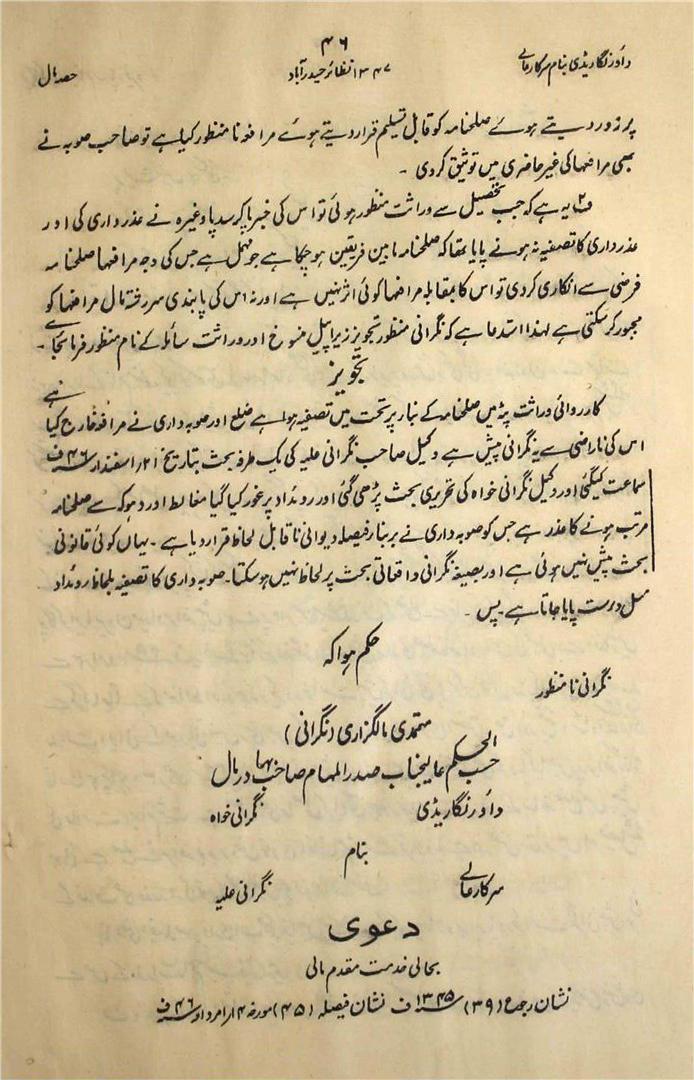 ۴۶
داور نگاریڈی بنام سرکار عالی
۱۳۴۷ نظائر حیدرآباد
حصہ مال
پر زور دیتے ہوئے صلحنامہ کو قابل تسلیم قرار دیتے ہوئے مرافعہ نامنظور کیا ہے تو صاحب صوبہ نے
بھی مرافعہا کی غیر حاضری میں توثیق کردی ۔
ف۲ یہ ہے کہ جب تحصیل سے وراثت منظور ہوئی تو اس کی خبر پا کر سدپا وغیرہ نے عذر داری کی اور
عذر داری کا تصفیہ نہ ہونے پایا تھا کہ صلحنامہ مابین فریقین ہو چکا ہے جو مہمل ہے جس کی وجہ مرافعہا صلحنامہ
فرضی سے انکاری کردی تو اس کا بمقابلہ مرافعہا کوئی اثر نہیں ہے اور نہ اس کی پابندی سررشتہ مال مرافعہا کو
مجبور کر سکتی ہے لہذا استدعا ہے کہ نگرانی منظور تجویز زیر اپیل منسوخ اور وراثت سائلہ کے نام منظور فرمائی جائے ۔
تجویز
کارروائی وراثت پٹہ میں صلحنامہ کے بناء پر تحت میں تصفیہ ہوا ہے ضلع اور صوبہ داری نے مرافعہ خارج کیا ہے
اس کی ناراضی سے یہ نگرانی پیش ہے وکیل صاحب نگرانی علیہ کی یک طرفہ بحث بتاریخ ۲۱/ اسفندار ۴۶ ف
سماعت کیگئی اور وکیل نگرانی خواہ کی تحریری بحث پڑھی گئی اور روئداد پر غور کیا گیا مغالطہ اور دھوکہ سے صلحنامہ
مرتب ہونے کا عذر ہے جس کو صوبہ داری نے بربنار فیصلہ دیوانی ناقابل لحاظ قرار دیا ہے ۔ یہاں کوئی قانونی
بحث پیش نہیں ہوئی ہے اور بصیغہ نگرانی واقعاتی بحث پر لحاظ نہیں ہو سکتا ۔ صوبہ داری کا تصفیہ بلحاظ روئداد
مسل درست پایا جاتا ہے ۔ پس ۔
حکم ہوا کہ
نگرانی نامنظور
معتمدی مالگزاری (نگرانی)
حسب الحکم عالیجناب صدر المہام صاحب بہادر مال
داور نگاریڈی نگرانی خواہ
بنام
سرکار عالی نگرانی علیہ
دعوی
بحالی خدمت مقدم مالی
نشان رجوع (۳۹) ۱۳۴۵ ف نشان فیصلہ (۴۵) مورخہ ۴/ امرداد ۴۶ ف